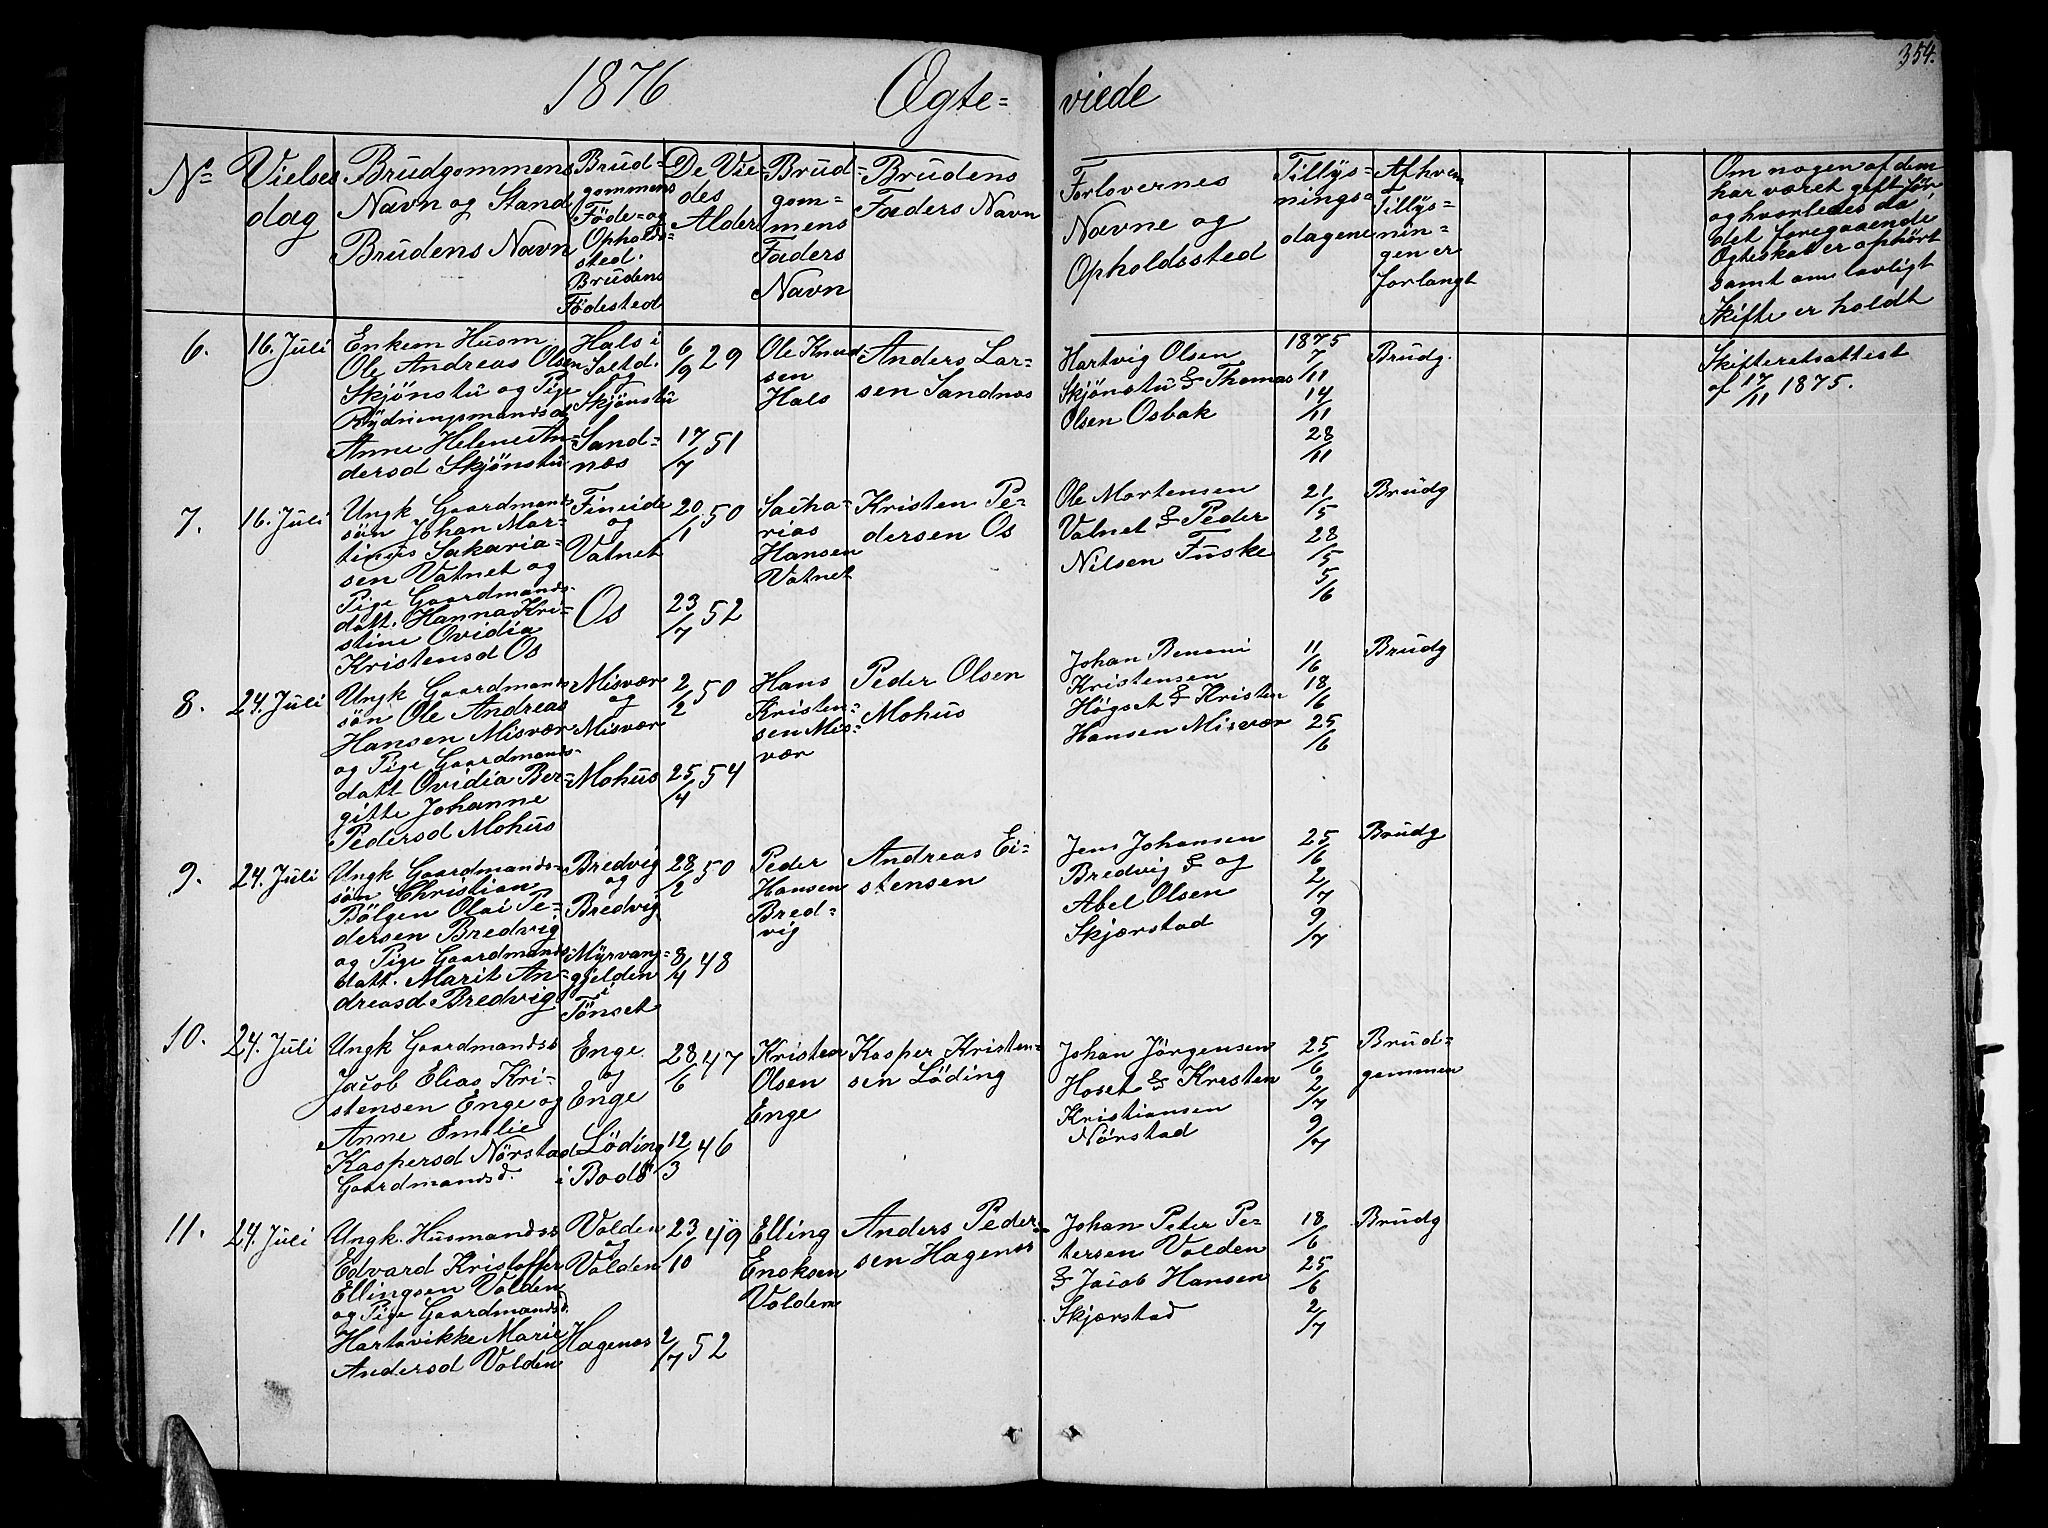 354.
1876 Ægte= viede
No
Vielses
dag
Brudgommens
Navn og Stand
Brudens Navn
Brud=
gommens
Föde= og
Opholds=
sted.
Brudens
Födested
De Vie=
des
Alder
Brud=
gom=
mens
Faders
Navn
Brudens
Faders Navn
Forlovernes
Navne og
Opholdssted
Tillys=
nings=
dagene
Af hvem
Tillys=
nin=
gen er
forlangt
Om nogen af dem
har været gift för
og hvorledes da
det foregaaende
Ægteskab er ophört
samt om lovligt
Skifte er holdt
6.
16. Juli
Enkem Husm.
Ole Andreas Olsen
Skjönstu og Pige
Rydningsmandsd
Anne Helene An=
dersd Skjönstu
Hals i
Saltd.
og
Skjönstu
Sand=
næs
6/9 29
17/7 51
Ole Knud
sen
Hals
Anders Lar=
sen Sandnæs
Hartvig Olsen
Skjönstu & Thomas
Olsen Osbak
1875
7/11
14/11
28/11
Brudg.
Skifteretsattest
af 17/11 1875.
7.
16. Juli
Ungk Gaardmands
sön Johan Mar=
tinus Sakaria=
sen Vatnet og
Pige Gaardmands=
datt. Hanna Kri=
stine Ovidia
Kristensd Os
Fineide
og
Vatnet
Os
20/1 50
23/7 52
Sacha=
rias
Hansen
Vatnet
Kristen Pe=
dersen Os
Ole Mortensen
Vatnet & Peder
Nilsen Fuske
21/5
28/5
5/6
Brudg
8.
24. Juli
Ungk Gaardmands
sön Ole Andreas
Hansen Misvær
og Pige Gaardmands=
datt Ovidia Ber=
gitte Johanne
Pedersd Mohus
Misvær
og
Misvær
Mohus
2/2 50
25/4 54
Hans
Kristen=
sen Mis=
vær
Peder Olsen
Mohus
Johan Benoni
Kristensen
Högset & Kristen
Hansen Misvær
11/6
18/6
25/6
Brudg
9.
24. Juli
Ungk Gaardmands=
sön Christian
Bölgen Olai Pe=
dersen Bredvig
og Pige Gaardmands
datt. Marit An=
dreasd Bredvig
Bredvig
og
Bredvig
Myrvang=
gjelden
i
Tönset
28/2 50
8/4 48
Peder
Hansen
Bred=
vig
Andreas Ei=
stensen
Jens Johansen
Bredvig & og
Abel Olsen
Skjærstad
25/6
2/7
9/7
Brudg
10.
24. Juli
Ungk Gaardmandss
Jacob Elias Kri=
stensen Enge og
Anne Emilie
Kaspersd Nörstad
Gaardmandsd.
Enge
og
Enge
Löding
i Bodö
28/6 47
12/3 46
Kristen
Olsen
Enge
Kasper Kristen=
sen Löding
Johan Jörgensen
Hoset & Kristen
Kristiansen
Nörstad
25/6
2/7
9/7
Brud=
gommen
11.
24. Juli
Ungk. Husmandss
Edvard Kristoffer
Ellingsen Valden
og Pige Gaardmandsd.
Hartvikke Marie
Andersd Valden
Valden
og
Valden
Hagenes
23/10 49
2/7 52
Elling
Enoksen
Valden
Anders Peder=
sen Hagenes
Johan Peter Pe=
tersen Valden
& Jacob Hansen
Skjærstad
18/6
25/6
2/7
Brudg